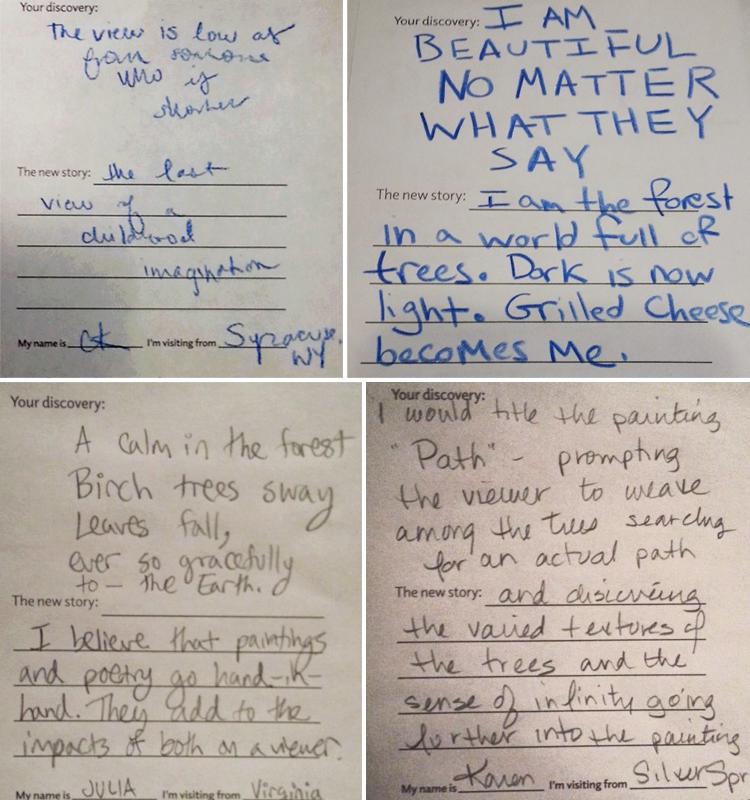 Your discovery:
The view is low as
from someone
who is
shorter
The new story: the last
view of a
childhood
imagination
My name is CK I'm visiting from Syracuse,
NY
Your discovery: I AM
BEAUTIFUL
NO MATTER
WHAT THEY
SAY
The new story: I am the forest
in a world full of
trees. Dark is now
light. Grilled Cheese
becomes Me.
Your discovery:
A calm in the forest
Birch trees sway
Leaves fall,
ever so gracefully
to — the Earth.
The new story:
I believe that paintings
and poetry go hand-in-
hand. They add to the
impacts of both on a viewer.
My name is JULIA I'm visiting from Virginia
Your discovery:
I would title the painting
"Path" - prompting
the viewer to weave
among the trees searching
for an actual path
The new story: and discovering
the varied textures of
the trees and the
sense of infinity going
further into the painting
My name is Karen I'm visiting from Silver Spr